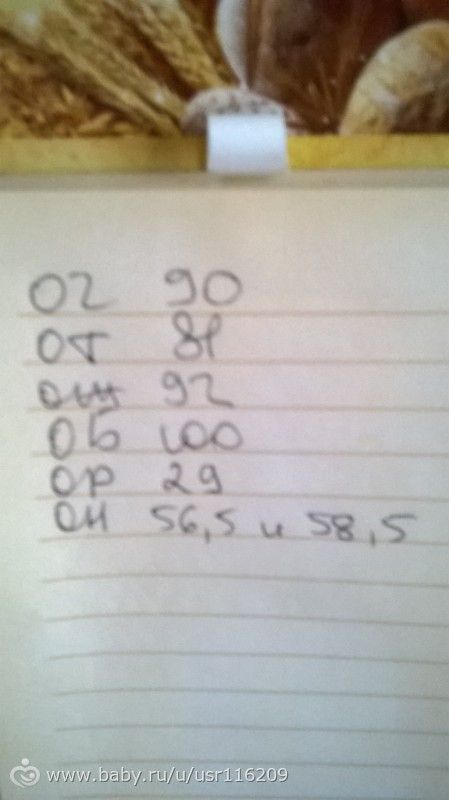 ОГ 90
ОТ 81
ОЖ 92
ОБ 100
ОР 29
ОН 56,5 и 58,5
www.baby.ru/u/usr116209